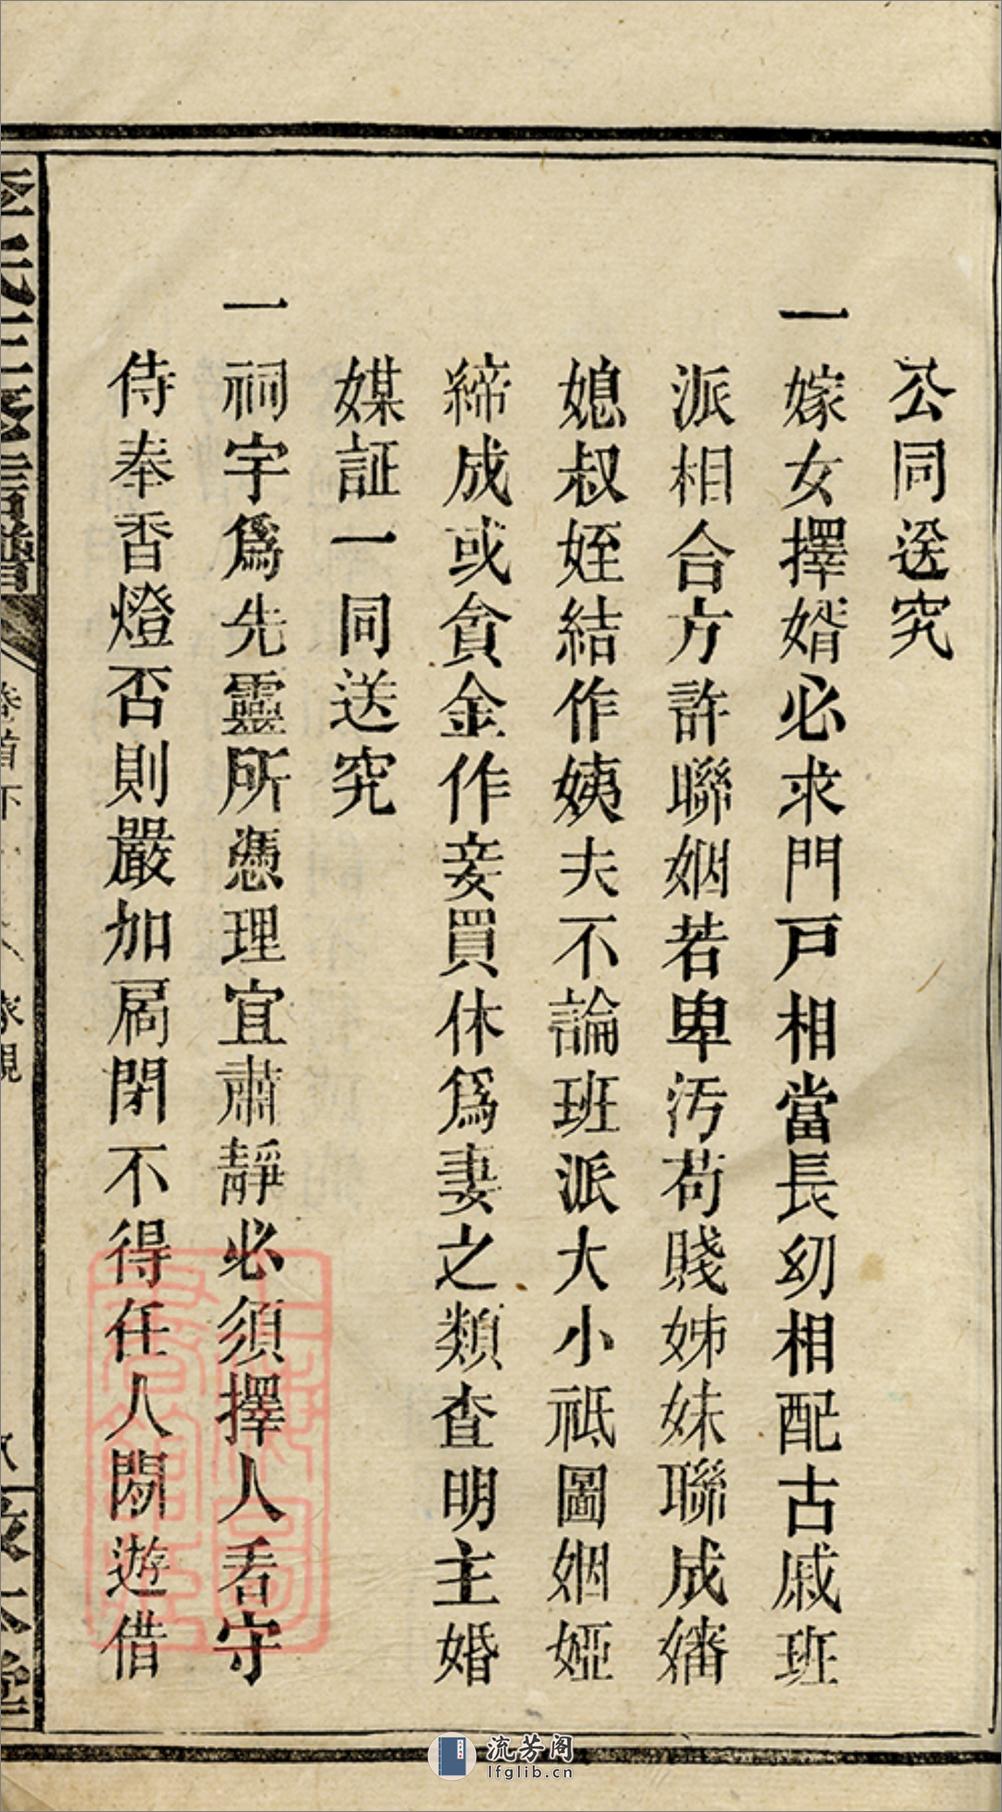 公同送究
一嫁女擇婿必求門戸相當長幼相配古戚班
派相合方許聯姻若卑汚苟賤姊妹聯成嬸
媳叔姪結作姨夫不論班派大小祗圖姻婭
締成或貪金作妾買休爲妻之類查明主婚
媒証一同送究
一祠宇爲先靈所憑理宜肅靜必須擇人看守
侍奉香燈否則嚴加扃閉不得任人閒遊借
卷首下
家規
流芳阁
lfglib.cn